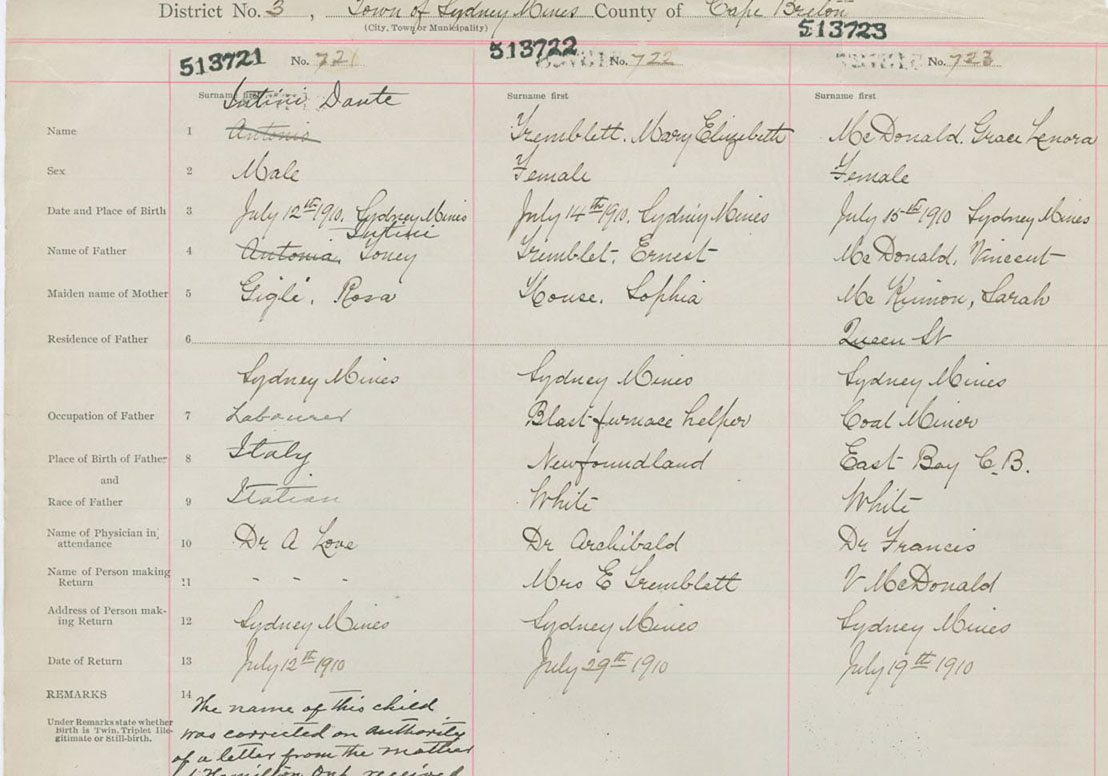 District No. 3, Town of Sydney Mines County of Cape Breton
(City, Town or Municipality)
513721 No. 721 513722 No. 722 513723 No. 723
Surname first Surname first Surname first
Intini Dante
Name 1 Antonia Tremblett, Mary Elizabeth McDonald, Grace Lenora
Sex 2 Male Female Female
Date and Place of Birth 3 July 12th 1910, Sydney Mines July 14th 1910, Sydney Mines July 15th 1910 Sydney Mines
Intini
Name of Father 4 Antonia, Toney Tremblet, Ernest McDonald, Vincent
Maiden name of Mother 5 Gigle, Rosa House, Sophia Mc Kinnon, Sarah
Residence of Father 6 Queen St
Sydney Mines Sydney Mines Sydney Mines
Occupation of Father 7 Labourer Blast furnace helper Coal Miner
Place of Birth of Father 8 Italy Newfoundland East Bay C.B.
and
Race of Father 9 Italian White White
Name of Physician in attendance 10 Dr A Love Dr Archibald Dr Francis
Name of Person making Return 11 " " " Mrs E Tremblett V McDonald
Address of Person making Return 12 Sydney Mines Sydney Mines Sydney Mines
Date of Return 13 July 12th 1910 July 29th 1910 July 19th 1910
REMARKS 14
Under Remarks state whether
Birth is Twin, Triplet Ille-
gitimate or Still-birth.
The name of this child
was corrected on authority
of a letter from the mother
Hamilton, Ont. received